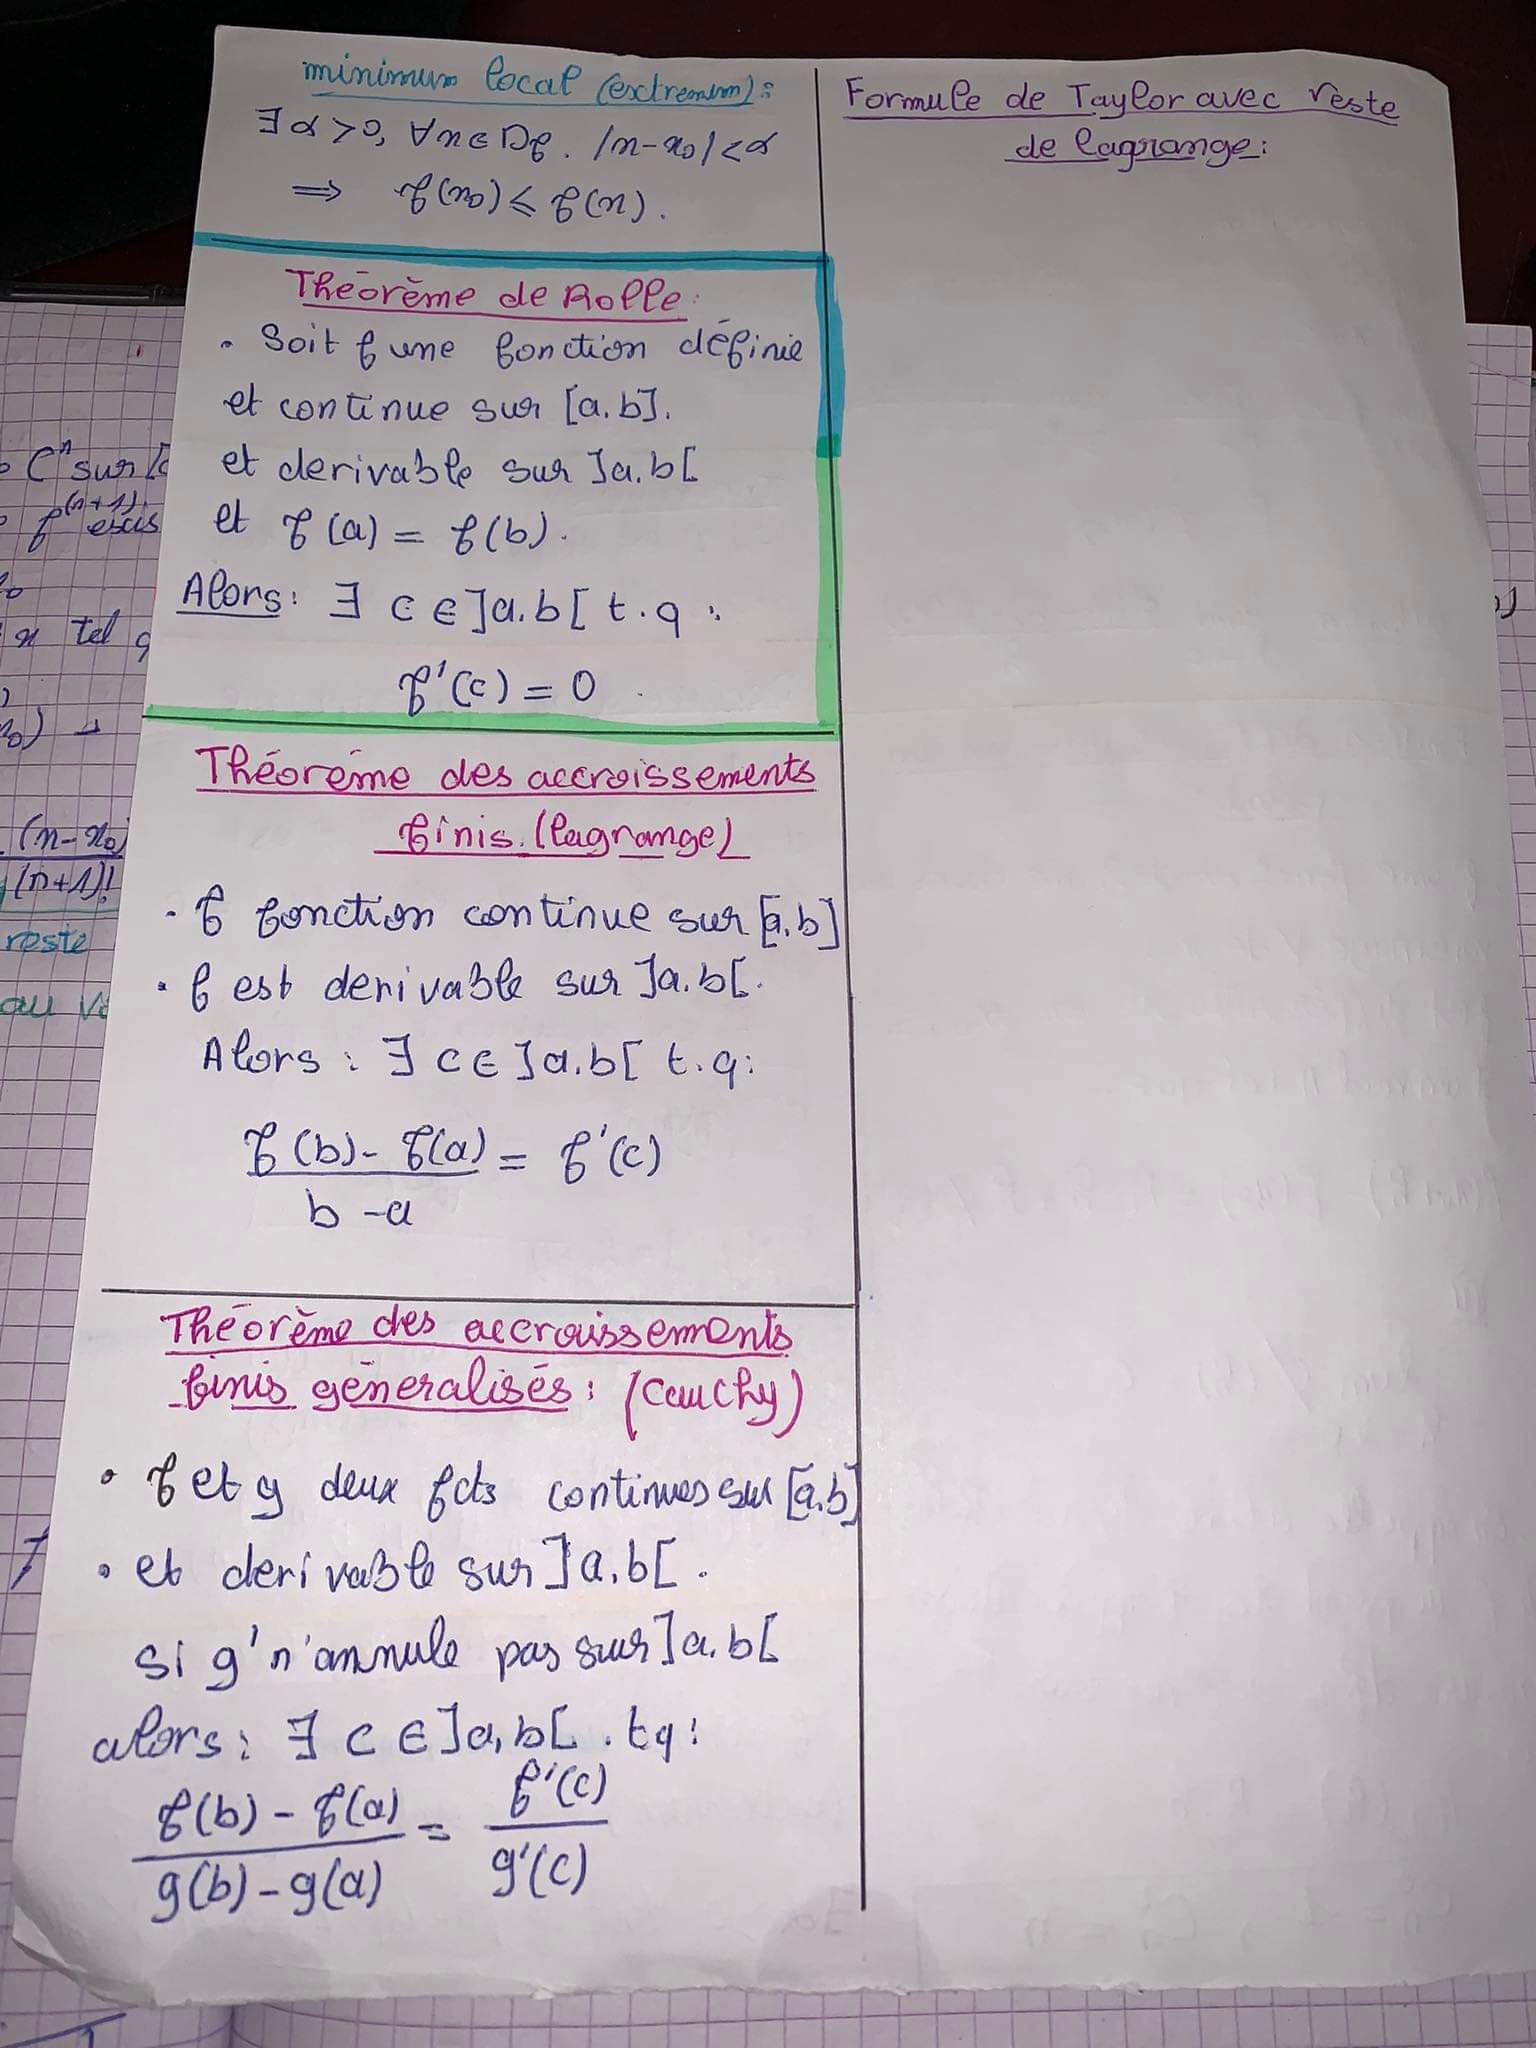 minimum local (extremum) :
∃ α > 0, ∀x ∈ Df. |x - x₀| < α
⟹ f(x₀) ⩽ f(x).
Théorème de Rolle :
• Soit f une fonction définie
et continue sur [a.b].
et derivable sur ]a.b[
et f(a) = f(b).
Alors : ∃ c ∈ ]a.b[ t.q :
f'(c) = 0
Théorème des accroissements
finis. (lagrange)
• f fonction continue sur [a.b]
• f est derivable sur ]a.b[.
Alors : ∃ c ∈ ]a.b[ t.q :
f(b) - f(a) = f'(c)
b - a
Théorème des accroissements
finis géneralisés : (Cauchy)
• f et g deux fcts continues sur [a.b]
• et derivable sur ]a.b[.
si g' n'annule pas sur ]a.b[
alors : ∃ c ∈ ]a,b[ . tq :
f(b) - f(a) = f'(c)
g(b) - g(a) g'(c)
Formule de Taylor avec reste
de lagrange :
Cⁿ sur [
f⁽ⁿ⁺¹⁾ exis
x tel q
(x - x₀)
(n+1)!
reste
au vo